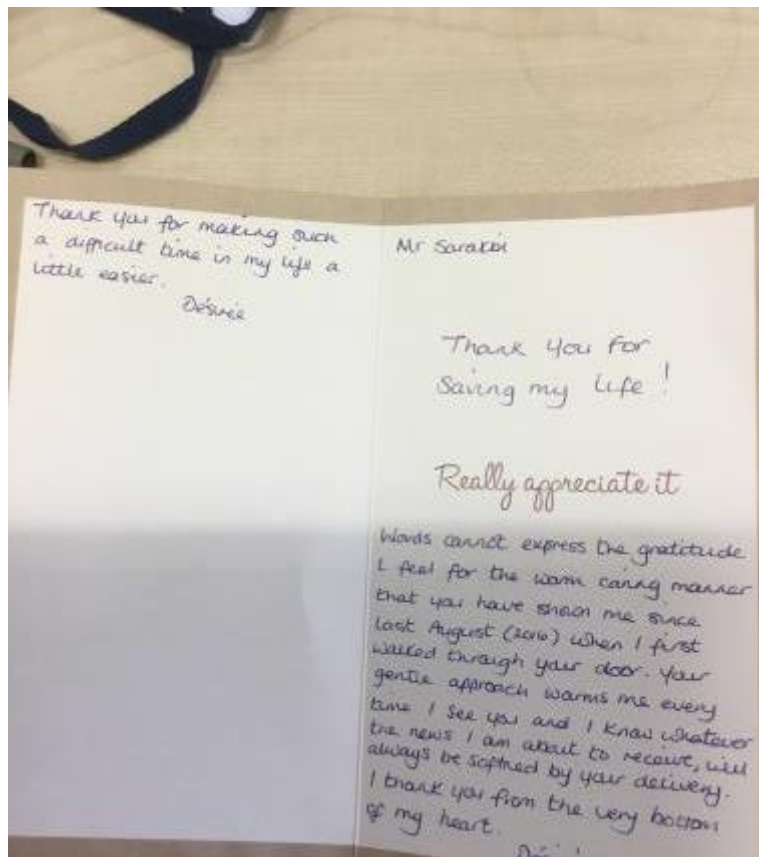 Thank you for making such
a difficult time in my life a
little easier.
Désirée
Mr Sarakbi
Thank you for
Saving my life!
Really appreciate it
Words cannot express the gratitude
I feel for the warm caring manner
that you have shown me since
last August (2016) when I first
walked through your door. Your
gentle approach warms me every
time I see you and I know whatever
the news I am about to receive, will
always be softned by your delivery.
I thank you from the very bottom
of my heart.